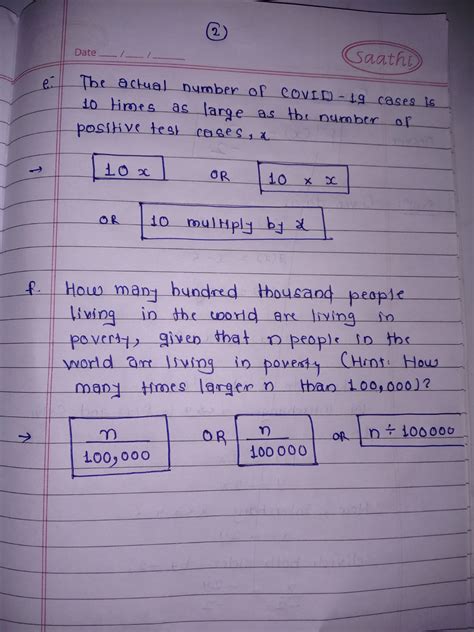 2
Date __/__/__
Saathi
e:- The actual number of COVID-19 cases is
10 times as large as the number of
positive test cases, x
→ 10 x OR 10 × x
OR 10 multiply by x
f. How many hundred thousand people
living in the world are living in
poverty, given that n people in the
world are living in poverty (Hint: How
many times larger n than 100,000)?
→ n/100,000 OR n/100000 OR n ÷ 100000